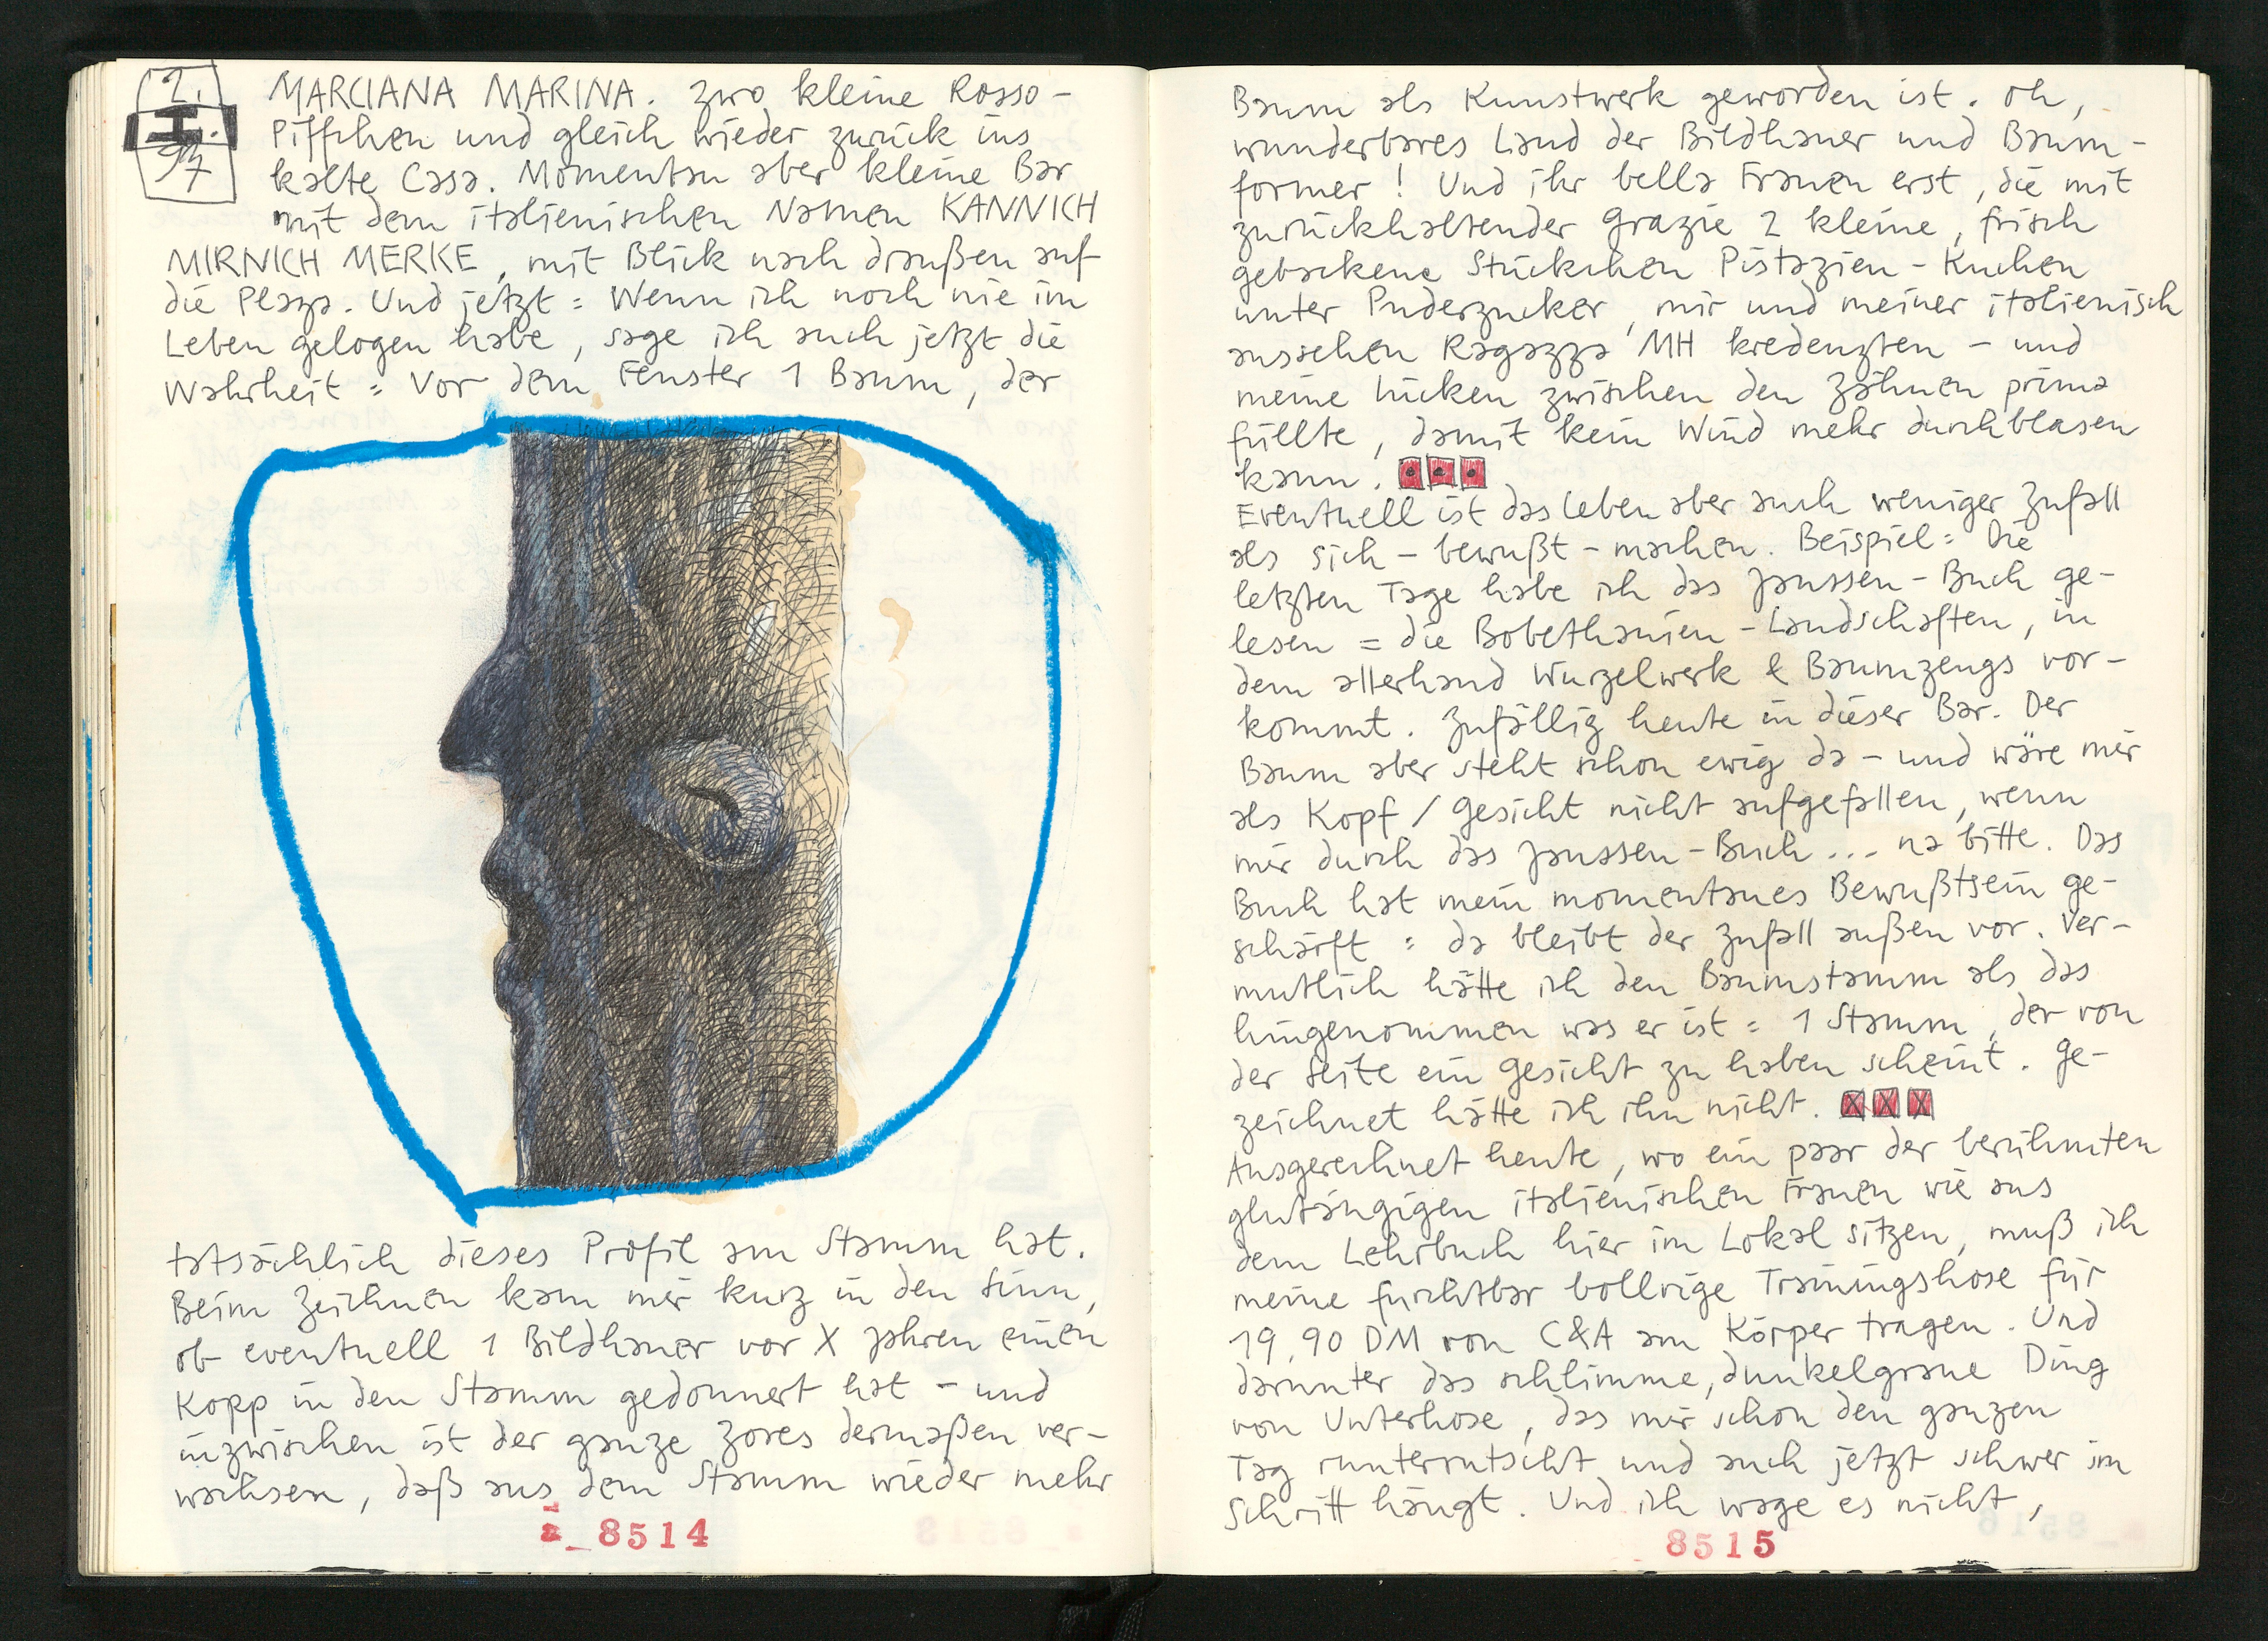 2.
I.
97
MARCIANA MARINA. Zwo kleine Rosso-
Piffchen und gleich wieder zurück ins
kalte Casa. Momentan aber kleine Bar
mit dem italienischen Namen KANNICH
MIRNICH MERKE, mit Blick nach draußen auf
die Plaza. Und jetzt: Wenn ich noch nie im
Leben gelogen habe, sage ich auch jetzt die
Wahrheit: Vor dem Fenster 1 Baum, der
tatsächlich dieses Profil am Stamm hat.
Beim Zeichnen kam mir kurz in den Sinn,
ob eventuell 1 Bildhauer vor X Jahren einen
Kopp in den Stamm gedonnert hat - und
inzwischen ist der ganze Zores dermaßen ver-
wachsen, daß aus dem Stamm wieder mehr
a_8514
Baum als Kunstwerk geworden ist. Oh,
wunderbares Land der Bildhauer und Baum-
former! Und ihr bella Frauen erst, die mit
zurückhaltender Grazie 2 kleine, frisch
gebackene Stückchen Pistazien-Kuchen
unter Puderzucker, mir und meiner italienisch
aussehen Ragazza MH kredenzten - und
meine Lücken zwischen den Zähnen prima
füllte, damit kein Wind mehr durchblasen
kann.
Eventuell ist das Leben aber auch weniger Zufall
als sich-bewußt-machen. Beispiel: Die
letzten Tage habe ich das Janssen-Buch ge-
lesen = die Bobethanien-Landschaften, in
dem allerhand Wurzelwerk & Baumzeugs vor-
kommt. Zufällig heute in dieser Bar. Der
Baum aber steht schon ewig da - und wäre mir
als Kopf / Gesicht nicht aufgefallen, wenn
mir durch das Janssen-Buch... na bitte. Das
Buch hat mein momentanes Bewußtsein ge-
schärft: da bleibt der Zufall außen vor. Ver-
mutlich hätte ich den Baumstamm als das
hingenommen was er ist: 1 Stamm, der von
der Seite ein Gesicht zu haben scheint. Ge-
zeichnet hätte ich ihn nicht.
Ausgerechnet heute, wo ein paar der berühmten
glutäugigen italienischen Frauen wie aus
dem Lehrbuch hier im Lokal sitzen, muß ich
meine furchtbar bollrige Trainingshose für
19,90 DM von C&A am Körper tragen. Und
darunter das schlimme, dunkelgraue Ding
von Unterhose, das mir schon den ganzen
Tag runterrutscht und auch jetzt schwer im
Schritt hängt. Und ich wage es nicht,
8515